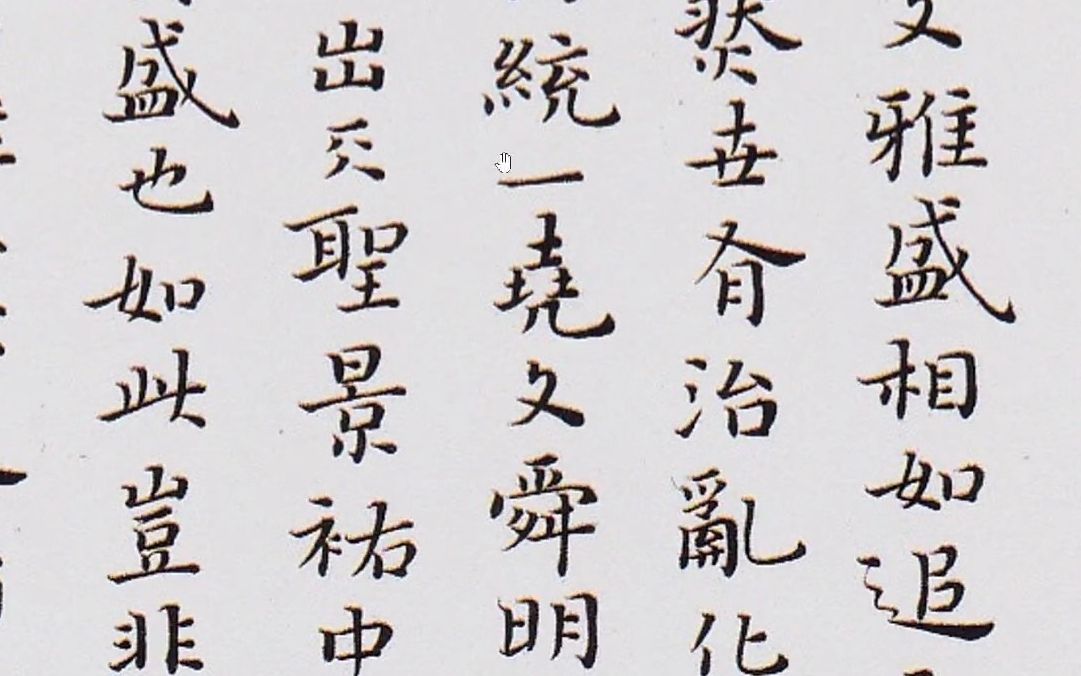 文雅盛相如追
癸世有治亂化
統一堯文舜明
出天聖景祐中
盛也如此豈非